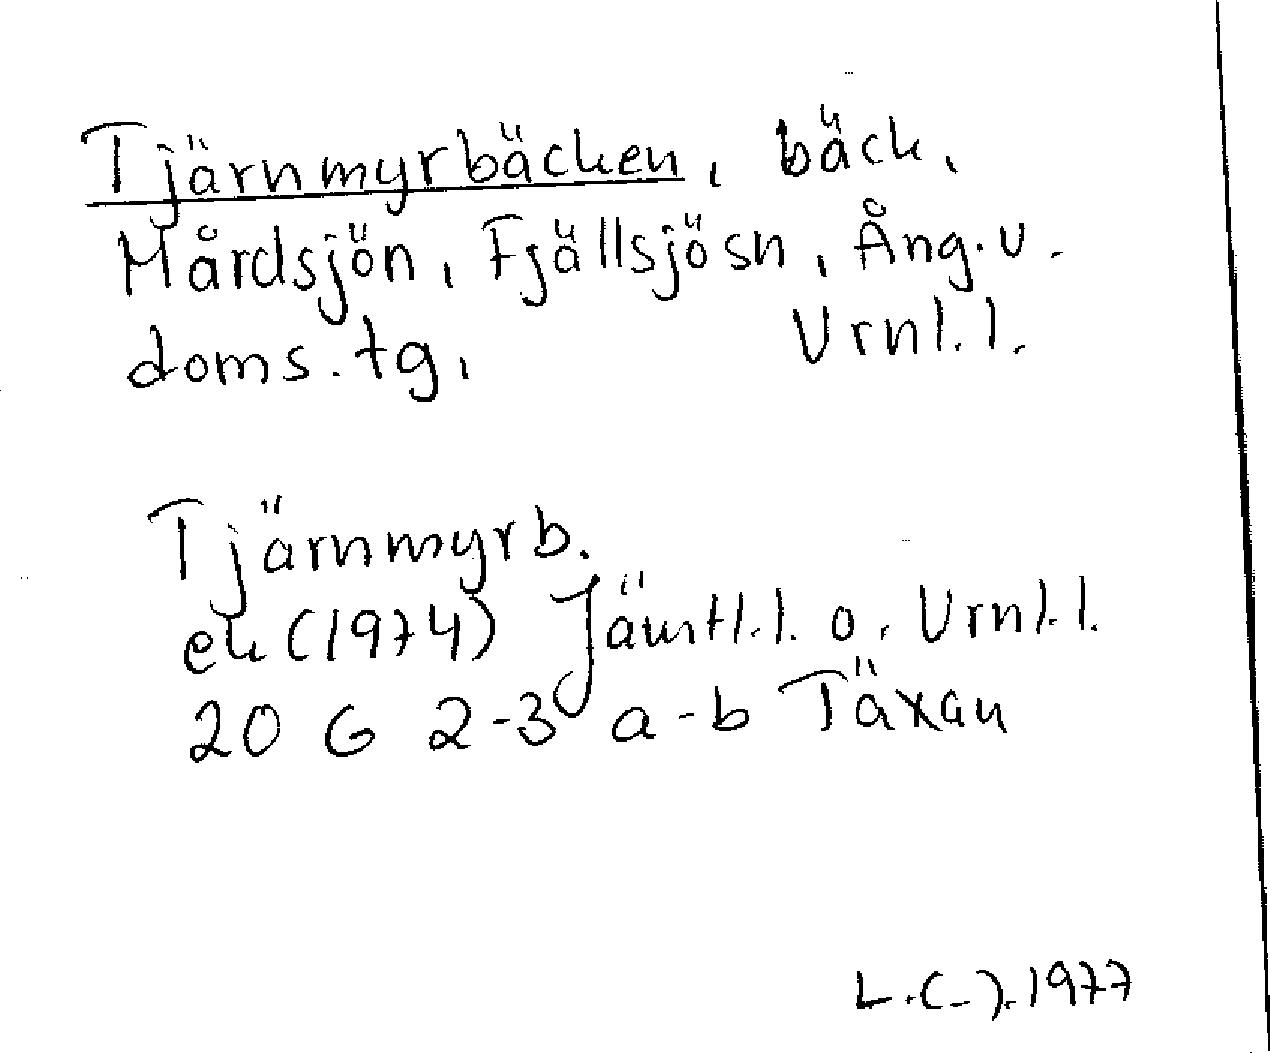 Tjärnmyrbäcken, bäck,
Mårdsjön, Fjällsjösn, Ång.v.
doms.tg, Vrnl.l.
Tjärnmyrb.
ek (1974) Jämtl.l. o. Vrnl.l.
20 G 2-3 a-b Täxan
L.(-).1977